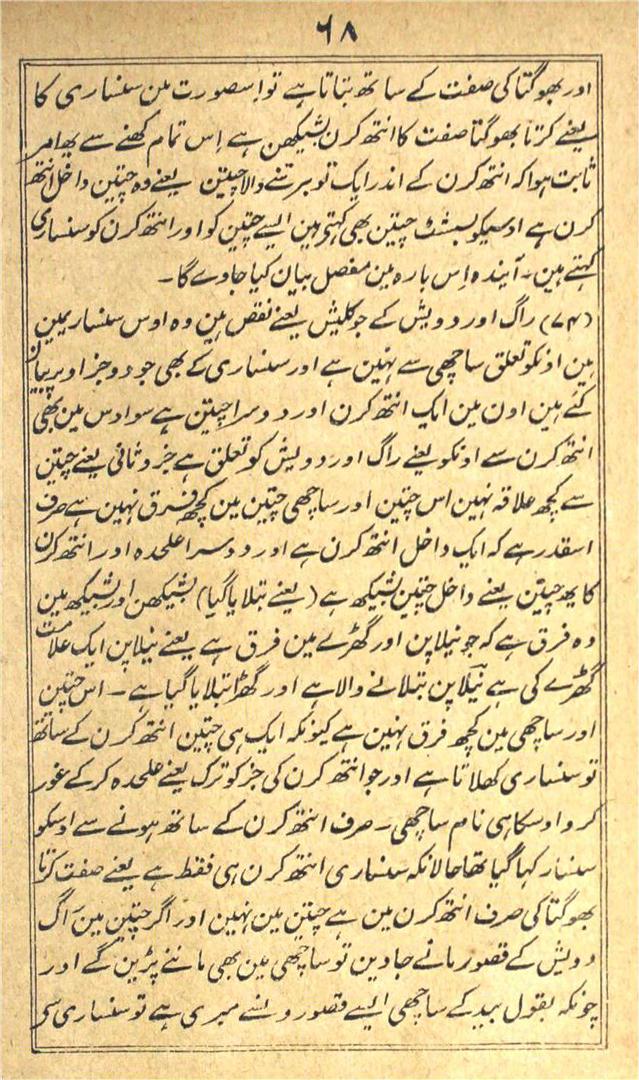 ۶۸
اور بھوگتا کی صفت کے ساتھ بتاتا ہے تو اِسصورت مین سنساری کا
یعنے کرتا بھوگتا صفت کا انتھ کرن بشیکھن ہے اِس تمام کھنے سے یھ امر
ثابت ہوا کہ انتھ کرن کے اندر ایک تو برتنے والا چیتن یعنے وہ چیتن داخل انتھ
کرن ہے اوسیکو بسشٹ چیتن بھی کہتی ہین ایسے چتین کو اور انتھ کرن کو سنساری
کہتے ہین ۔ آیندہ اِس بارہ مین مفصل بیان کیا جاوے گا ۔
(۷۴) راگ اور دویش کے جو کلیش یعنے نقص ہین وہ اوس سنسار یمین
ہین اونکو تعلق ساچھی سے نہین ہے اور سنساری کے بھی جو دو جز اوپر بیان
کئے ہین اون مین ایک انتھ کرن اور دوسرا چیتن ہے سو اوس مین بھی
انتھ کرن سے اونکو یعنے راگ اور دویش کو تعلق ہے جز و ثانی یعنے چیتن
سے کچھ علاقہ نہین اس چتین اور ساچھی چتین مین کچھ فرق نہین ہے صرف
اسقدر ہے کہ ایک داخل انتھ کرن ہے اور دوسرا علحدہ اور انتھ کرن
کا یھ چیتن یعنے داخل چتین بشیکھ ہے (یعنے بتلایا گیا) بشیکھن اور بشیکھ مین
وہ فرق ہے کہ جو نیلا پن اور گھڑے مین فرق ہے یعنے نیلا پن ایک علامت
گھڑے کی ہے نیلا پن بتلانے والا ہے اور گھڑا بتلایا گیا ہے ۔ اس چتین
اور ساچھی مین کچھ فرق نہین ہے کیونکہ ایک ہی چتین انتھ کرن کے ساتھ
تو سنساری کھلاتا ہے اور جو انتھ کرن کی جز کو ترک یعنے علحدہ کر کے غور
کرو اوسکا ہی نام ساچھی ۔ صرف انتھ کرن کے ساتھ ہونے سے اوسکو
سنسار کہا گیا تھا حالانکہ سنساری انتھ کرن ہی فقط ہے یعنے صفت کرتا
بھوگتا کی صرف انتھ کرن مین ہے چیتن مین نہین اور اگر چتین مین راگ
دویش کے قصور مانے جاوین تو ساچھی مین بھی ماننے پڑین گے اور
چونکہ بقول بید کے ساچھی ایسے قصورو نسے مبری ہے تو سنساری سی